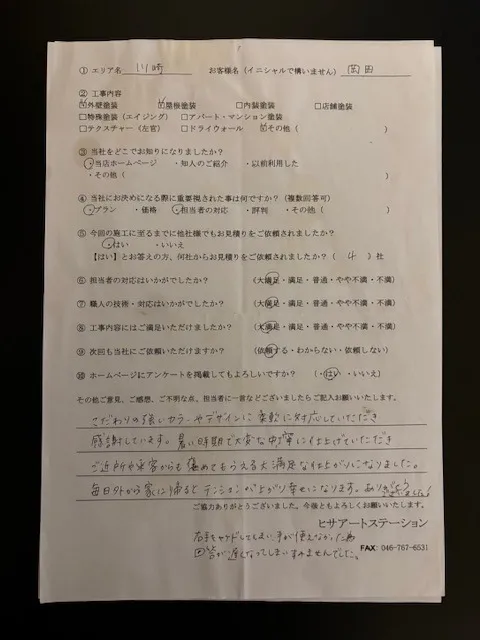 ① エリア名 川崎 お客様名（イニシャルで構いません）岡田
② 工事内容
☑外壁塗装 ☑屋根塗装 □内装塗装 □店舗塗装
□特殊塗装（エイジング） □アパート・マンション塗装
□テクスチャー（左官） □ドライウォール ☑その他（ ）
③ 当社をどこでお知りになりましたか？
・当店ホームページ ・知人のご紹介 ・以前利用した
・その他（ ）
④ 当社にお決めになる際に重要視された事は何ですか？（複数回答可）
・プラン ・価格 ・担当者の対応 ・評判 ・その他（ ）
⑤ 今回の施工に至るまでに他社様でもお見積りをご依頼されましたか？
・はい ・いいえ
【はい】とお答えの方、何社からお見積りをご依頼されましたか？（ 4 ）社
⑥ 担当者の対応はいかがでしたか？ （大満足・満足・普通・やや不満・不満）
⑦ 職人の技術・対応はいかがでしたか？ （大満足・満足・普通・やや不満・不満）
⑧ 工事内容にはご満足いただけましたか？ （大満足・満足・普通・やや不満・不満）
⑨ 次回も当社にご依頼いただけますか？ （依頼する・わからない・依頼しない）
⑩ ホームページにアンケートを掲載してもよろしいですか？ （・はい・いいえ）
その他ご意見、ご感想、ご不明な点、担当者に一言などございましたらご記入お願いいたします。
こだわりの強いカラーやデザインに柔軟に対応していただき
感謝しています。暑い時期で大変な中丁寧に仕上げていただき
ご近所や来客からも褒めてもらえる大満足な仕上がりになりました。
毎日外から家に帰るとテンションが上がり幸せになります。ありがとうございました！
ご協力ありがとうございました。今後ともよろしくお願いいたします。
ヒサアートステーション
右手をヤケドしてしまい、手が使えなかった為
回答が遅くなってしまいすみませんでした。
FAX: 046-767-6531